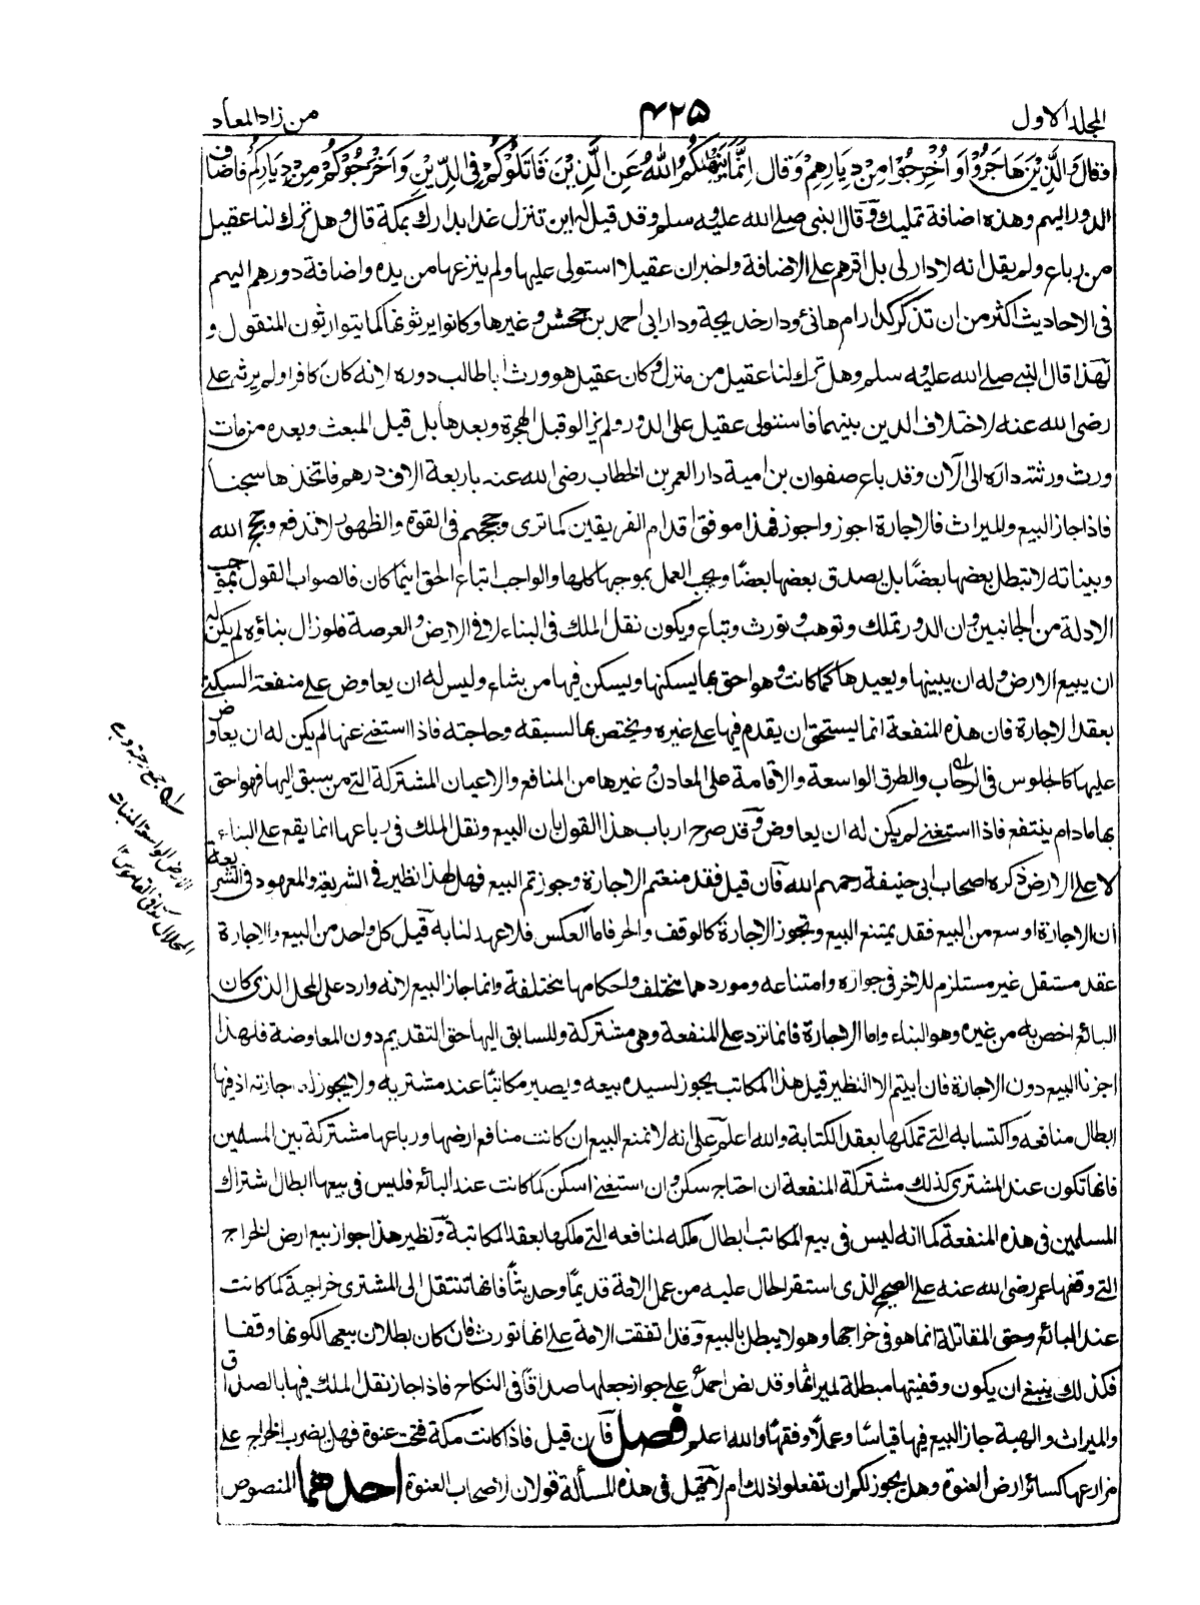 المجلد الاول
۴۲۵
من زاد المعاد
فقال وَالَّذِيْنَ هَاجَرُوْا وَاُخْرِجُوْا مِنْ دِيَارِهِمْ وَقال اِنَّمَا يَنْهٰىكُمُ اللّٰهُ عَنِ الَّذِيْنَ قَاتَلُوْكُمْ فِي الدِّيْنِ وَاَخْرَجُوْكُمْ مِنْ دِيَارِكُمْ فاضاف
الدور اليهم وهذه اضافة تمليك وقال النبي صلى الله عليه وسلم وقد قيل له اين تنزل غدا بدارك بمكة قال وهل ترك لنا عقيل
من رباع ولم يقل انه لا دار لى بل اقرهم على الاضافة واخبران عقيلا استولى عليها ولم ينزعها من يده واضافة دورهم اليهم
فى الاحاديث اكثر من ان تذكر كدار ام هانئ ودار خديجة ودار ابى احمد بن جحش وغيرها وكانوا يرثونها كما يتوارثون المنقول و
لهذا قال النبي صلى الله عليه وسلم وهل ترك لنا عقيل من منزل وكان عقيل هو ورث ابا طالب دوره لانه كان كافرا ولم يرثه على
رضى الله عنه لاختلاف الدين بينهما فاستولى عقيل على الدور ولم يزالوا قبل الهجرة وبعدها بل قبل المبعث وبعده من مات
ورث ورثته داره الى الآن وقد باع صفوان بن امية دار العمر بن الخطاب رضى الله عنه باربعة الاف درهم فاتخذها سجنا
فاذا جاز البيع والميراث فالاجارة اجوز واجوز فهذا موقف اقدام الفريقين كما ترى وحججهم فى القوة والظهور لا تدفع وحجج الله
وبيناته لا تبطل بعضها بعضًا بل يصدق بعضها بعضًا ويجب العمل بموجبها كلها والواجب اتباع الحق اينما كان فالصواب القول بموجب
الادلة من الجانبين وان الدور تملك وتوهب وتورث وتباع ويكون نقل الملك فى البناء لا فى الارض والعرصة فلو زال بناؤه لم يكن له
ان يبيع الارض وله ان يبنيها ويعيدها كما كانت وهو احق بها يسكنها ويسكن فيها من يشاء وليس له ان يعاوض على منفعة السكنى
بعقد الاجارة فان هذه المنفعة انما يستحق ان يقدم فيها على غيره ويختص بها لسبقه وحاجته فاذا استغنى عنها لم يكن له ان يعاوض
عليها كالجلوس فى الرحاب والطرق الواسعة والاقامة على المعادن وغيرها من المنافع والاعيان المشتركة التى من سبق اليها فهو احق
بها مادام ينتفع فاذا استغنى لم يكن له ان يعاوض وقد صرح ارباب هذا القول بان البيع ونقل الملك فى رباعها انما يقع على البناء
لا على الارض ذكره اصحاب ابى حنيفة رحمهم الله فان قيل فقد منعتم الاجارة وجوزتم البيع فهل لهذا نظير فى الشريعة والمعهود فى الشريعة
ان الاجارة اوسع من البيع فقد يمتنع البيع وتجوز الاجارة كالوقف والحر فاما العكس فلا عهد لنا به قيل كل واحد من البيع والاجارة
عقد مستقل غير مستلزم للاخر فى جوازه وامتناعه وموردهما مختلف واحكامها مختلفة وانما جاز البيع لانه وارد على المحل الذى كان
البائع اخص به من غيره وهو البناء واما الاجارة فانما ترد على المنفعة وهى مشتركة وللسابق اليها حق التقديم دون المعاوضة فلهذا
اجزنا البيع دون الاجارة فان ابيتم الا النظير قيل هذا المكاتب يجوز لسيده بيعه ويصير مكاتبًا عند مشتريه ولا يجوز له اجازته اذ فيها
ابطال منافعه واكتسابه التى تملكها بعقد الكتابة والله اعلم على انه لا تمنع البيع ان كانت منافع ارضها ورباعها مشتركة بين المسلمين
فانها تكون عند المشترى كذلك مشتركة المنفعة ان احتاج سكن وان استغنى اسكن كما كانت عند البائع فليس فى بيعها ابطال اشتراك
المسلمين فى هذه المنفعة كما انه ليس فى بيع المكاتب ابطال ملكه لمنافعه التى ملكها بعقد المكاتبة ونظير هذا جواز بيع ارض الخراج
التى وقفها عمر رضى الله عنه على الصحيح الذى استقر الحال عليه من عمل الامة قديمًا وحديثًا فانها تنتقل الى المشترى خراجية كما كانت
عند البائع وحق المقاتلة انما هو فى خراجها وهو لا يبطل بالبيع وقد اتفقت الامة على انها تورث فان كان بطلان بيعها لكونها وقفا
فكذلك ينبغى ان يكون وقفيتها مبطلة لميراثها وقد نص احمد على جواز جعلها صداقًا فى النكاح فاذا جاز نقل الملك فيها بالصداق
والميراث والهبة جاز البيع فيها قياسًا وعملًا وفقهًا والله اعلم فصل فان قيل فاذا كانت مكة فتحت عنوة فهل يضرب الخراج على
مزارعها كسائر ارض العنوة وهل يجوز لكم ان تفعلوا ذلك ام لا قيل فى هذه المسألة قولان لاصحاب العنوة احدهما المنصوص